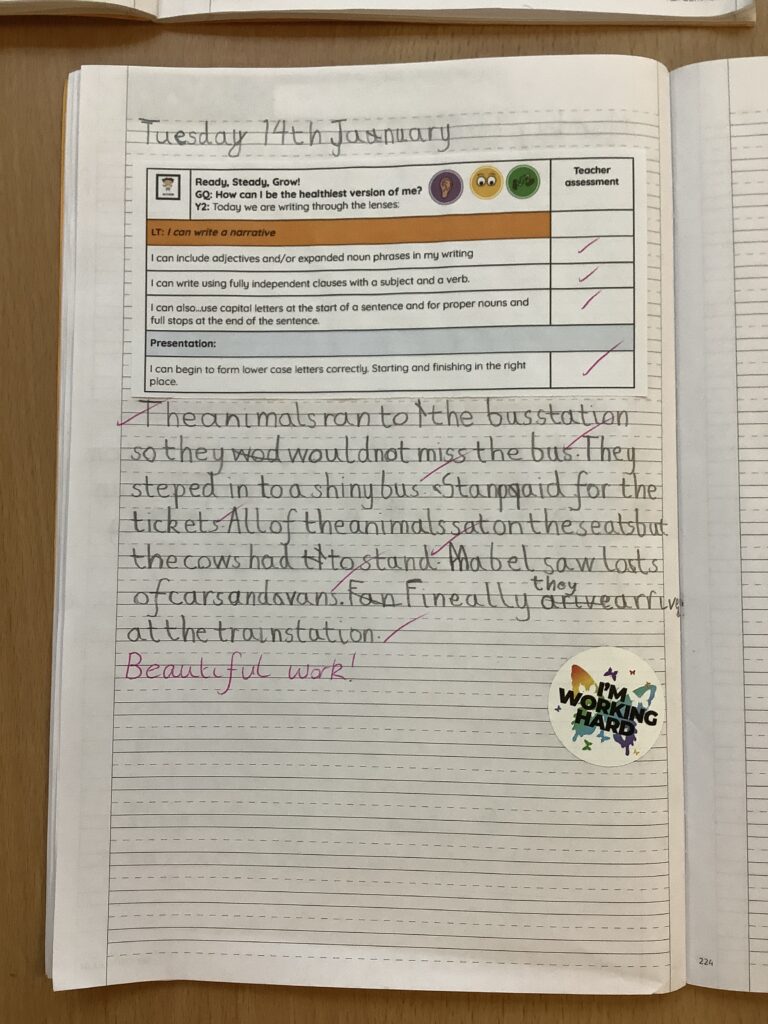 Tuesday 14th Jaunuary
Ready, Steady, Grow!
GQ: How can I be the healthiest version of me?
Y2: Today we are writing through the lenses:
Teacher
assessment
LT: I can write a narrative
I can include adjectives and/or expanded noun phrases in my writing
I can write using fully independent clauses with a subject and a verb.
I can also...use capital letters at the start of a sentence and for proper nouns and
full stops at the end of the sentence.
Presentation:
I can begin to form lower case letters correctly. Starting and finishing in the right
place.
The animals ran to the bus station
so they wod would not miss the bus. They
steped in to a shiny bus. Stan paid for the
tickets. All of the animals sat on the seats but
the cows had to stand. Mabel saw losts
of cars and vans. Fan Fineally they arive arrive
at the train station.
Beautiful work!
I'M
WORKING
HARD
224